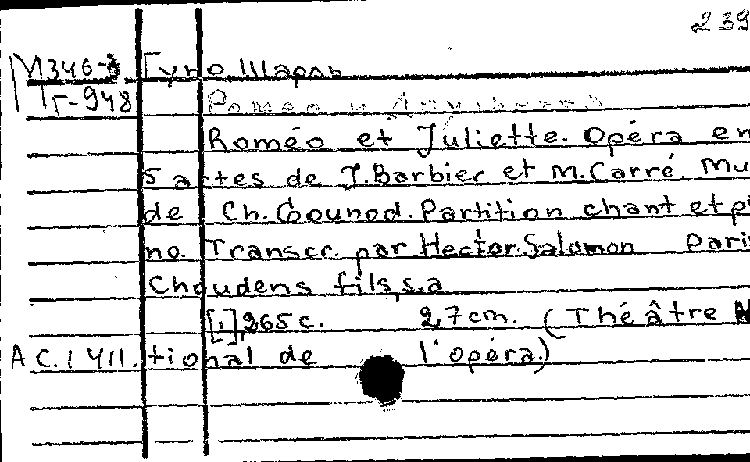 239
М346-3 Гуно, Шарль
Г-948 Ромео и Джульетта
Roméo et Juliette. Opéra en
5 actes de J.Barbier et M.Carré. Mu
de Ch.Gounod. Partition chant et pi
no Transcr. par Hector Salomon Pari
Choudens fils, s.a
[1], 265 c. 27cm. (Théâtre N
A C.I VII. tional de l'opéra.)